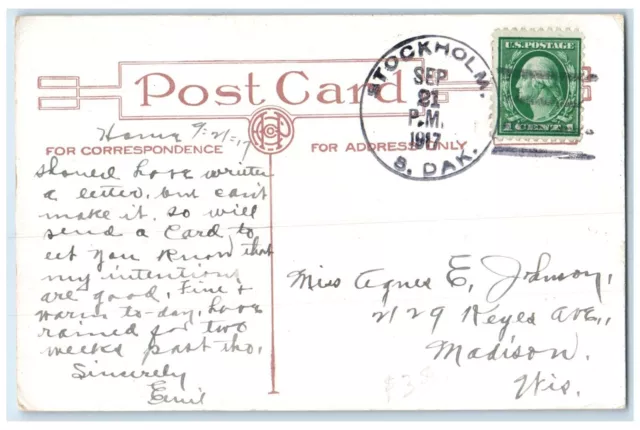 Post Card
STOCKHOLM.
SEP
21
P.M.
1917
S. DAK.
U.S. POSTAGE
1 CENT 1
Home 9-21-17
FOR CORRESPONDENCE
FOR ADDRESS ONLY
should have written
a letter, but can't
make it, so will
send a Card to
let you know that
my intentions
are good. Fine &
warm to-day, have
rained for two
weeks past tho.
Sincerely
Emil
Miss Agnes E. Johnson,
2129 Keyes Ave.,
Madison.
Wis.